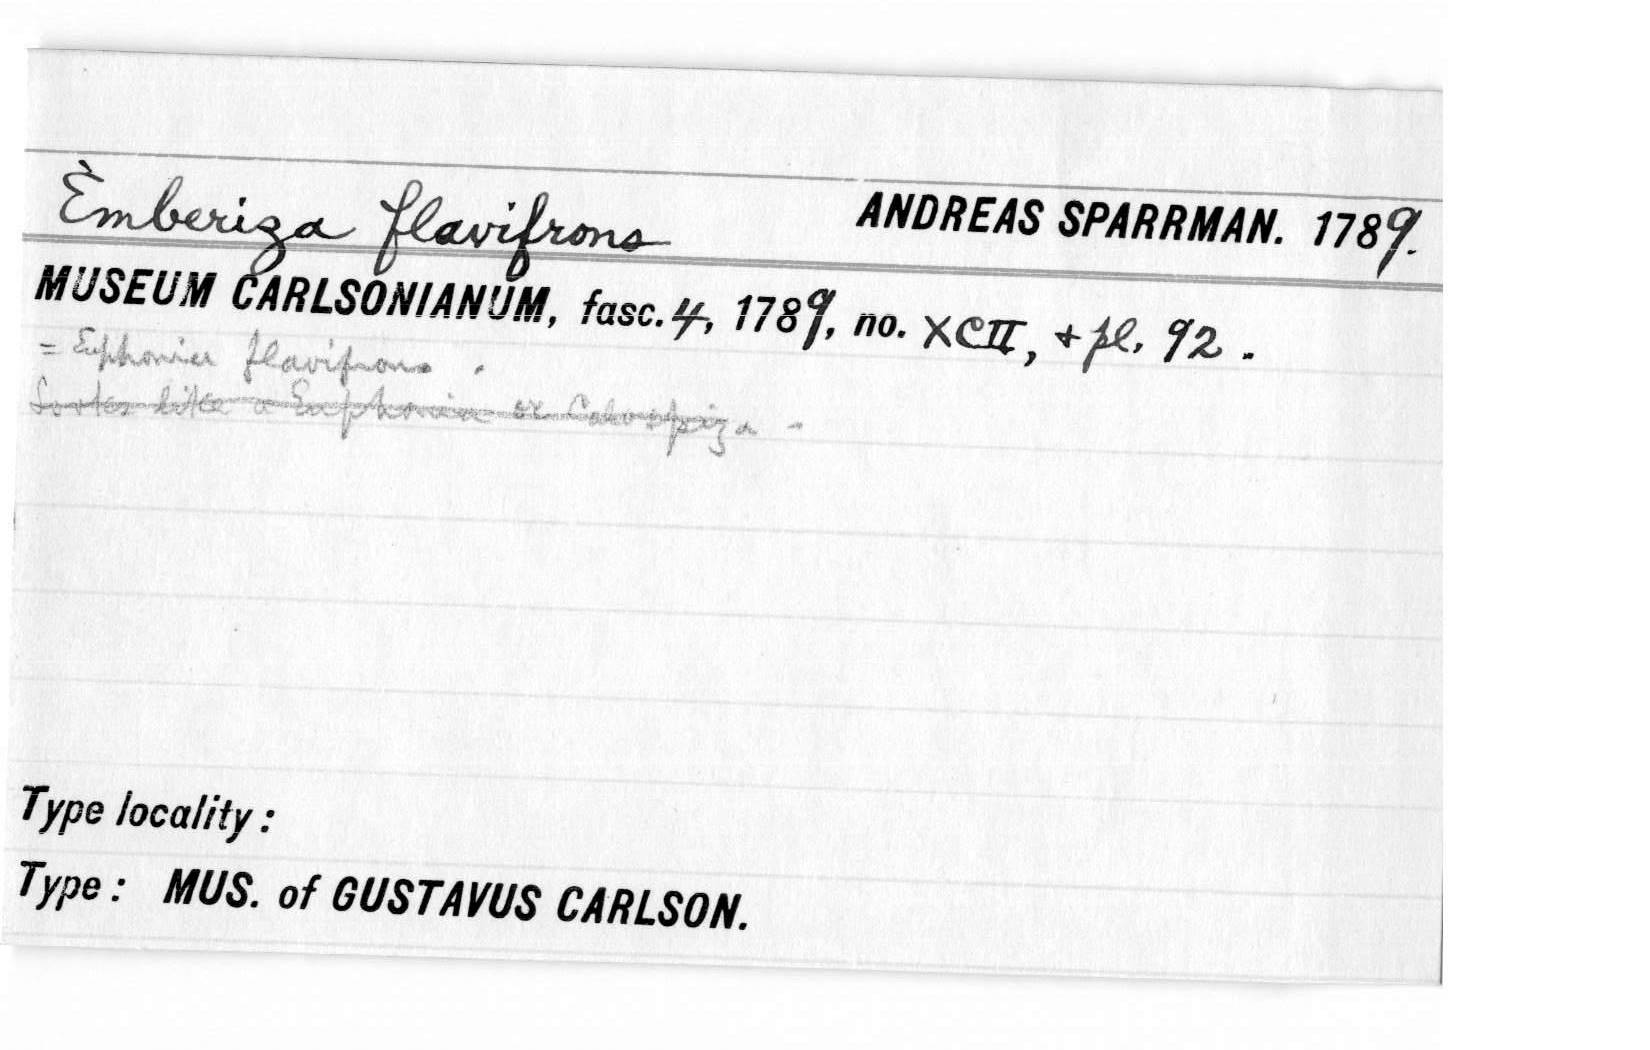 Emberiza flavifrons ANDREAS SPARRMAN. 1789.
MUSEUM CARLSONIANUM, fasc. 4, 1789, no. XCII, + pl. 92.
= Euphonia flavifrons.
Looks like a Euphonia or Calospiza.
Type locality:
Type: MUS. of GUSTAVUS CARLSON.